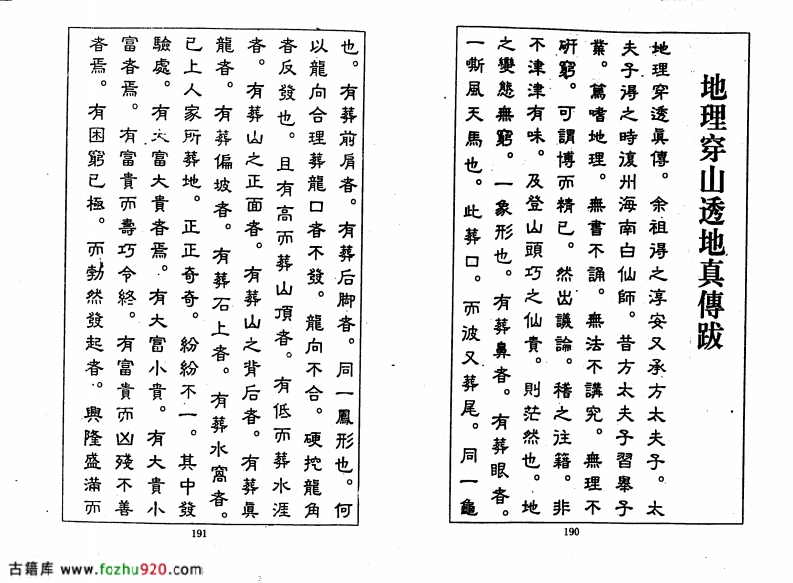 地理穿山透地真傳跋
地理穿透眞傳。余祖得之淳安又承方太夫子。太
夫子得之時復州海南白仙師。昔方太夫子習舉子
業。篤嗜地理。無書不誦。無法不講究。無理不
研窮。可謂博而精已。然出議論。稽之往籍。非
不津津有味。及登山頭巧之仙貴。則茫然也。地
之變態無窮。一象形也。有葬鼻者。有葬眼者。
一嘶風天馬也。此葬口。而彼又葬尾。同一龜
190
也。有葬前肩者。有葬后脚者。同一鳳形也。何
以龍向合理葬龍口者不發。龍向不合。硬挖龍角
者反發也。且有高而葬山頂者。有低而葬水涯
者。有葬山之正面者。有葬山之背后者。有葬眞
龍者。有葬偏坡者。有葬石上者。有葬水窩者。
已上人家所葬地。正正奇奇。紛紛不一。其中發
驗處。有大富大貴者焉。有大富小貴。有大貴小
富者焉。有富貴而壽巧令終。有富貴而凶殘不善
者焉。有困窮已極。而勃然發起者。興隆盛滿而
191
古籍库 www.fozhu920.com